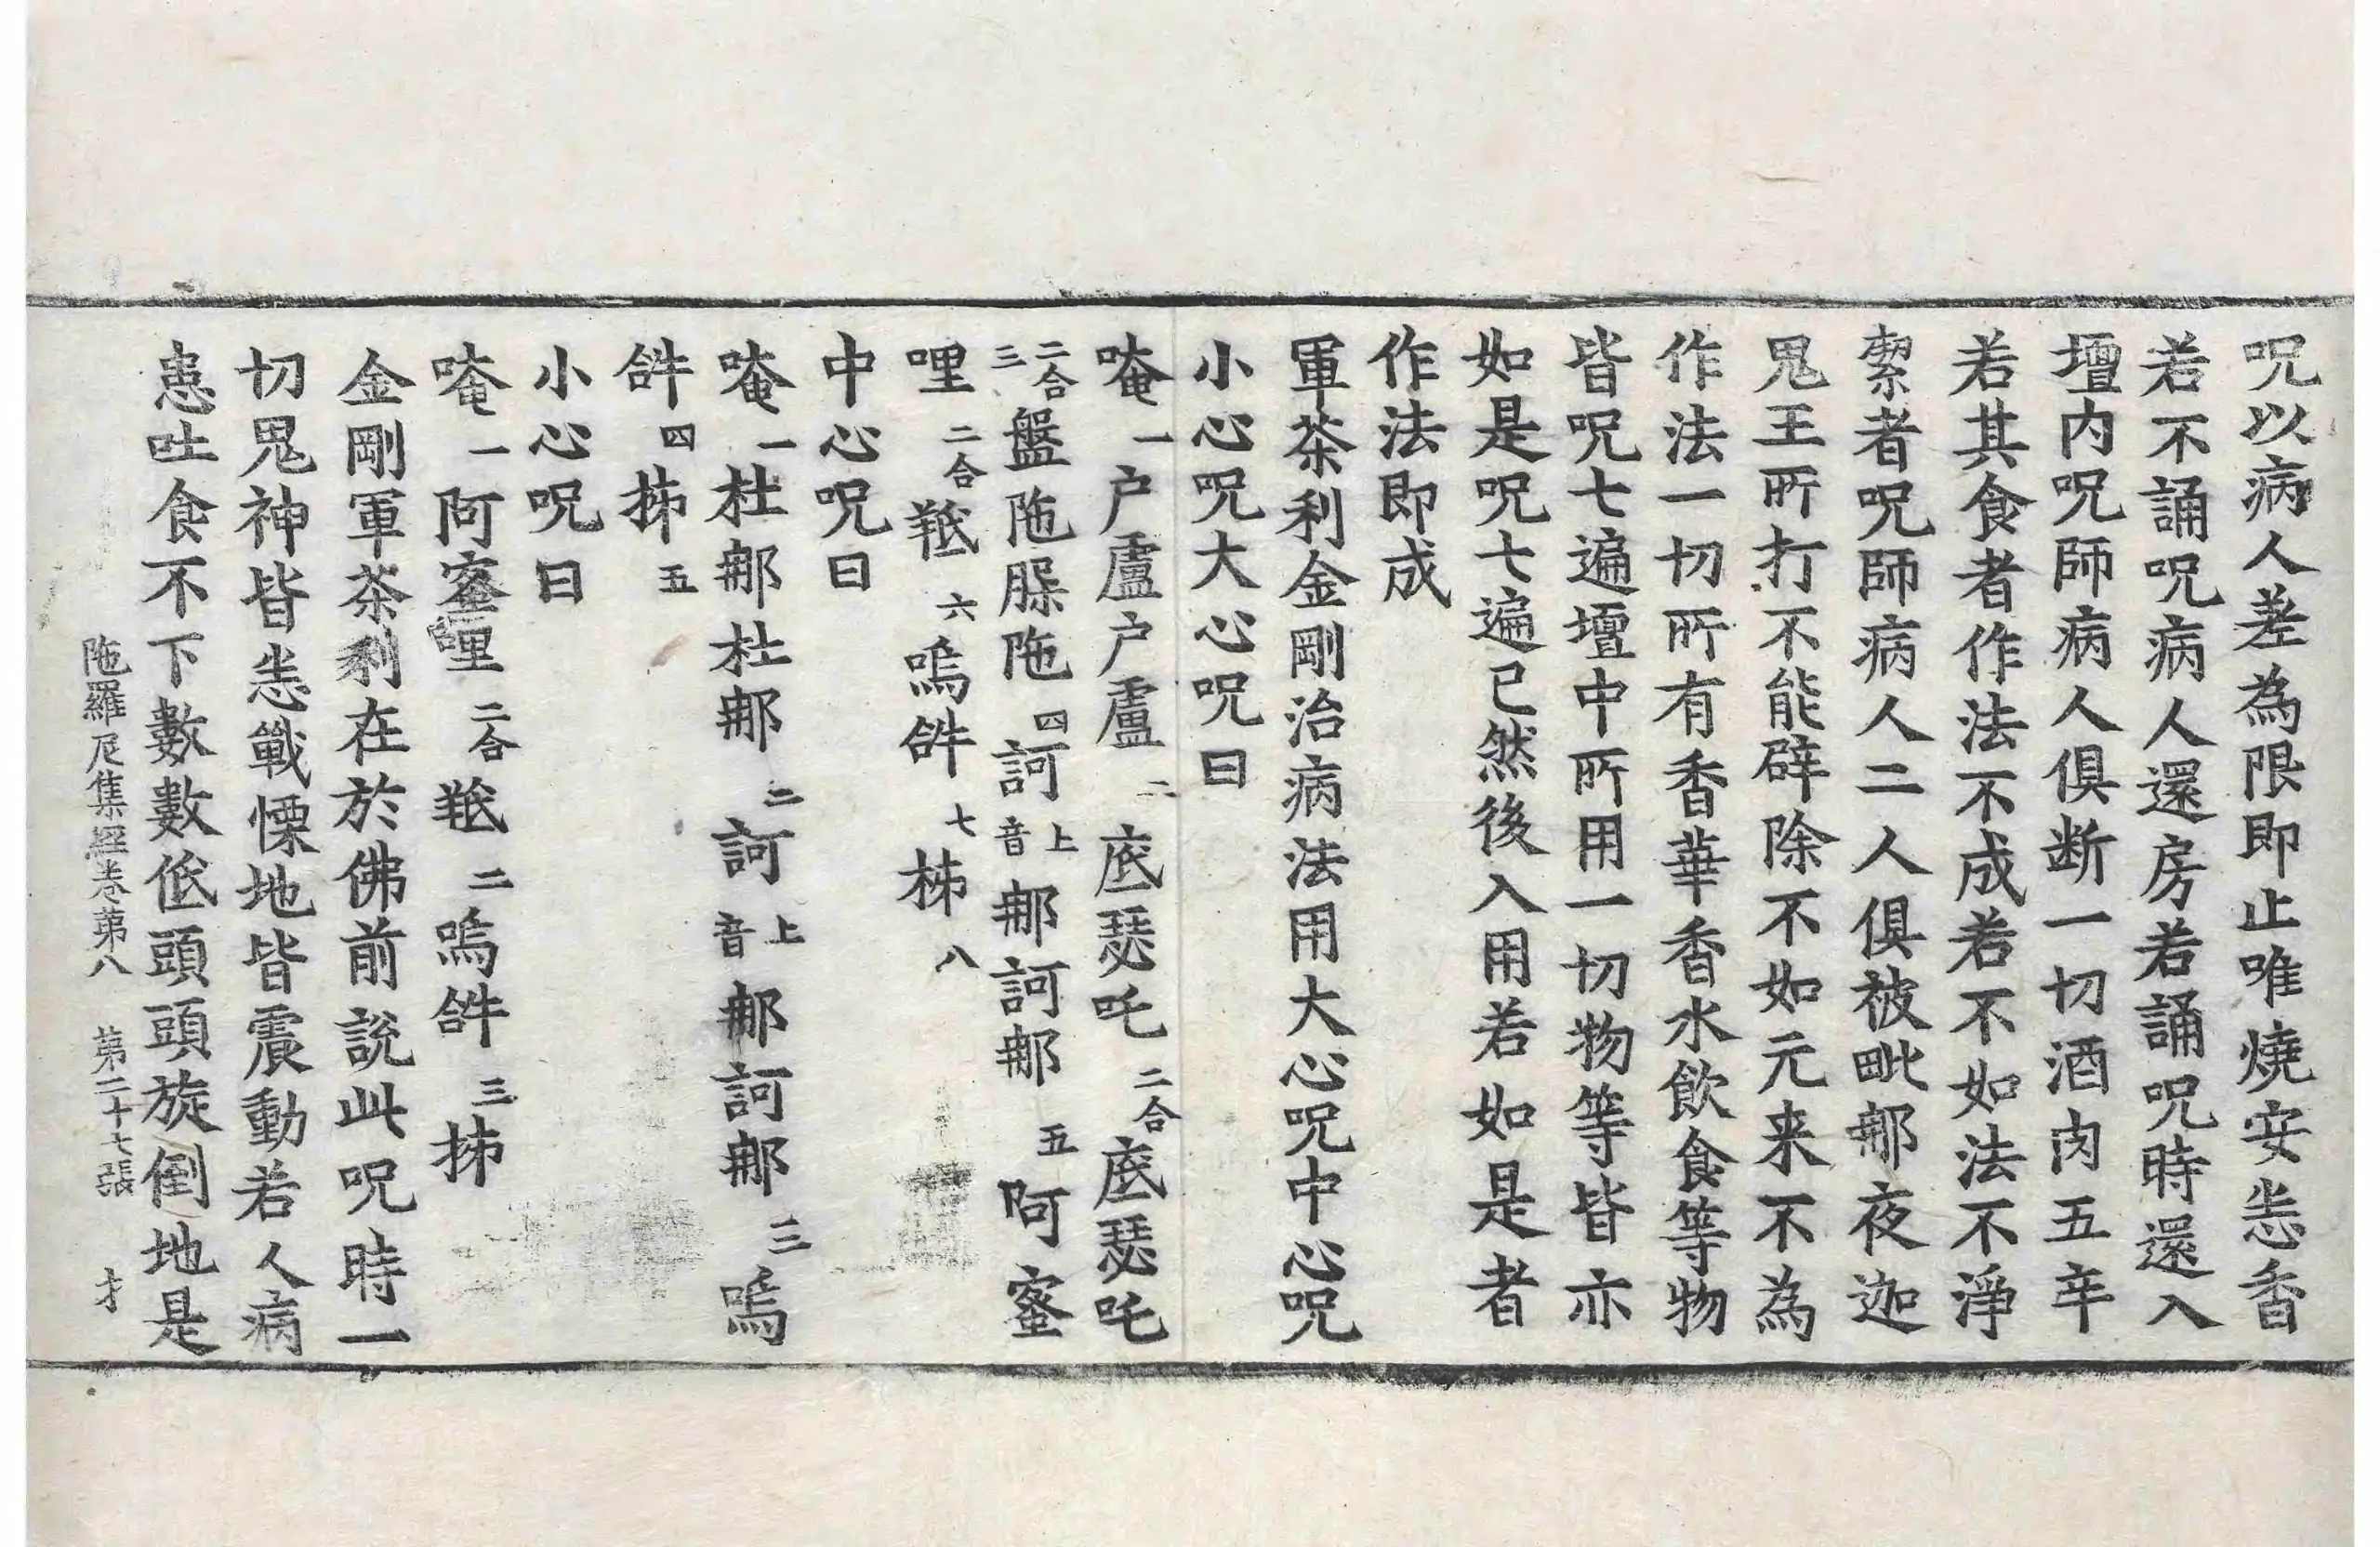 呪以病人差為限即止唯燒安悉香
若不誦呪病人還房若誦呪時還入
壇内呪師病人俱断一切酒肉五辛
若其食者作法不成若不如法不淨
潔者呪師病人二人俱被毗那夜迦
鬼王所打不能辟除不如元来不為
作法一切所有香華香水飲食等物
皆呪七遍壇中所用一切物等皆亦
如是呪七遍已然後入用若如是者
作法即成
軍茶利金剛治病法用大心呪中心呪
小心呪大心呪曰
唵一户盧户盧二底瑟吒二合底瑟吒
二合三盤陁陁四訶上音那訶那五阿蜜
哩二合㲉六嗚𤙖七柹八
中心呪曰
唵一杜那杜那二訶上音那訶那三嗚
𤙖四抪五
小心呪曰
唵一阿蜜哩二合㲉二嗚𤙖三抪
金剛軍茶利在於佛前説此呪時一
切鬼神皆悉戰慄地皆震動若人病
患吐食不下數數低頭頭旋倒地是
陁羅尼集経卷苐八 苐二十七張 才